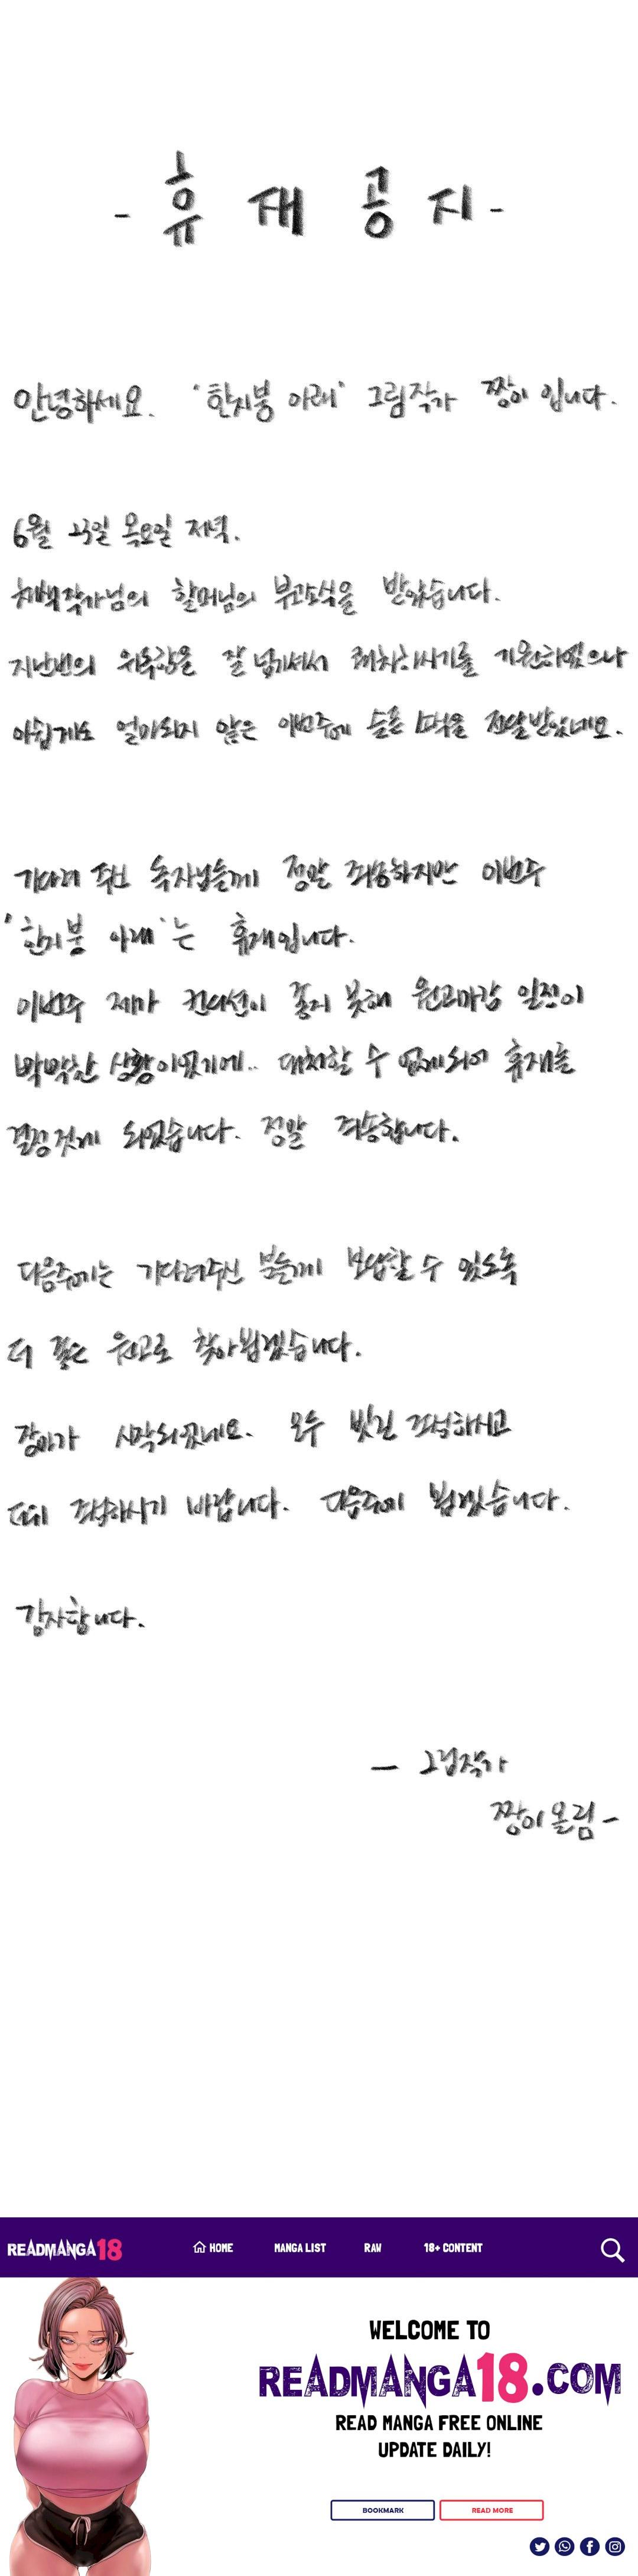 - 휴재공지 -
안녕하세요. '한지붕 아래' 그림작가 짱이 입니다.
6월 23일 목요일 저녁.
작가님의 할머님의 부고소식을 받았습니다.
지난번의 위독함을 잘 넘기셔서 쾌차하시기를 기원하였으나
아쉽게도 얼마되지 않은 이번주에 슬픈 소식을 전달받았네요.
기다려 주신 독자님들께 정말 죄송하지만 이번주
'한지붕 아래'는 휴재입니다.
이번주 제가 컨디션이 좋지 못해 원고마감 일정이
빡빡한 상황이었기에.. 대처할 수 없게되어 휴재를
결정짓게 되었습니다. 정말 죄송합니다.
다음주에는 기다려주신 분들께 보답할 수 있도록
더 좋은 원고로 찾아뵙겠습니다.
장마가 시작되었네요. 모두 빗길 조심하시고
더위 조심하시기 바랍니다. 다음주에 뵙겠습니다.
감사합니다.
- 그림작가
짱이 올림 -
READMANGA18 HOME MANGA LIST RAW 18+ CONTENT
WELCOME TO
READMANGA18.COM
READ MANGA FREE ONLINE
UPDATE DAILY!
BOOKMARK READ MORE